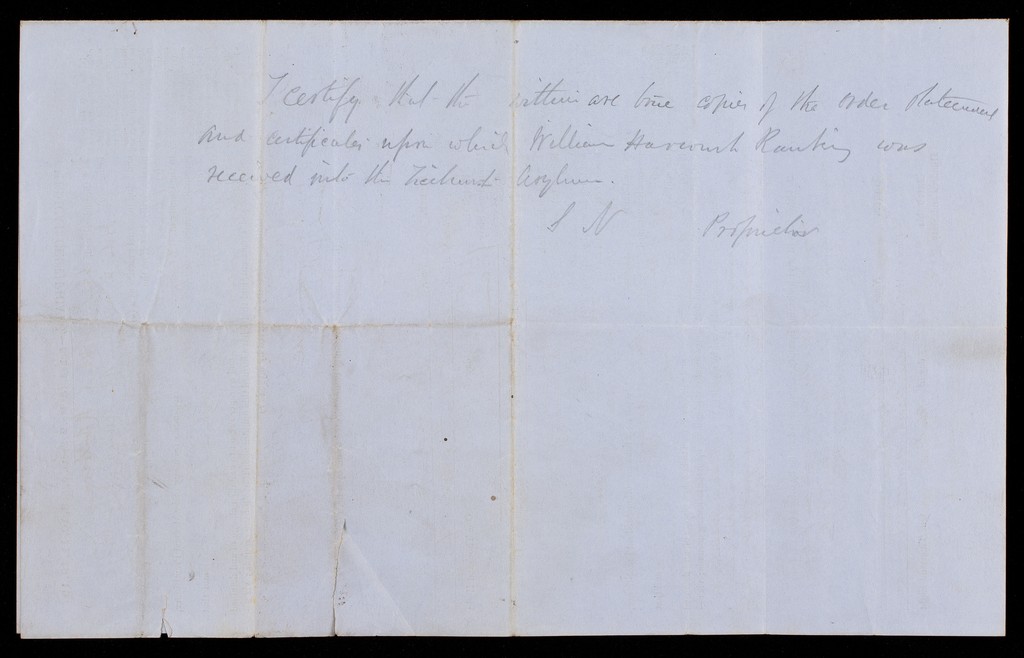 I certify that the within are true copies of the order statement
and certificates upon which William Harcourt Ranking was
received into the Ticehurst Asylum.
S N Proprietor